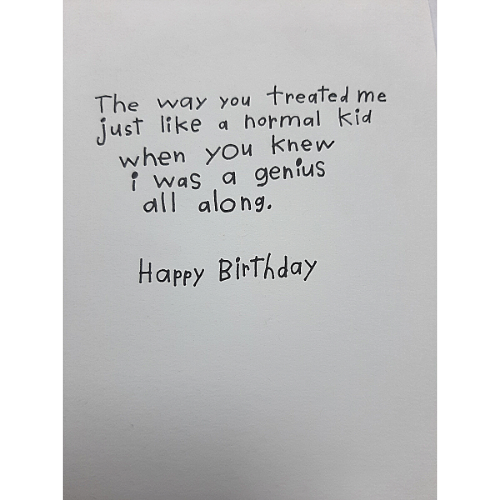 The way you treated me
just like a normal kid
when you knew
i was a genius
all along.
Happy Birthday